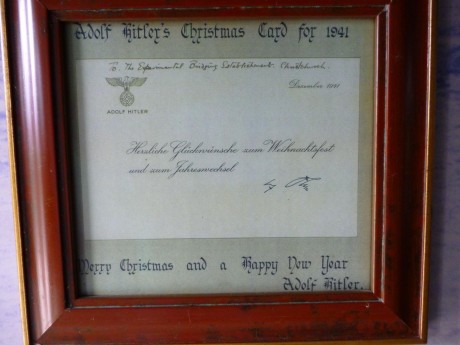 Adolf Hitler's Christmas Card for 1941
To The Experimental Bridging Establishment. Christchurch.
Dezember 1941
ADOLF HITLER
Herzliche Glückwünsche zum Weihnachtsfest
und zum Jahreswechsel
Merry Christmas and a Happy New Year
Adolf Hitler.